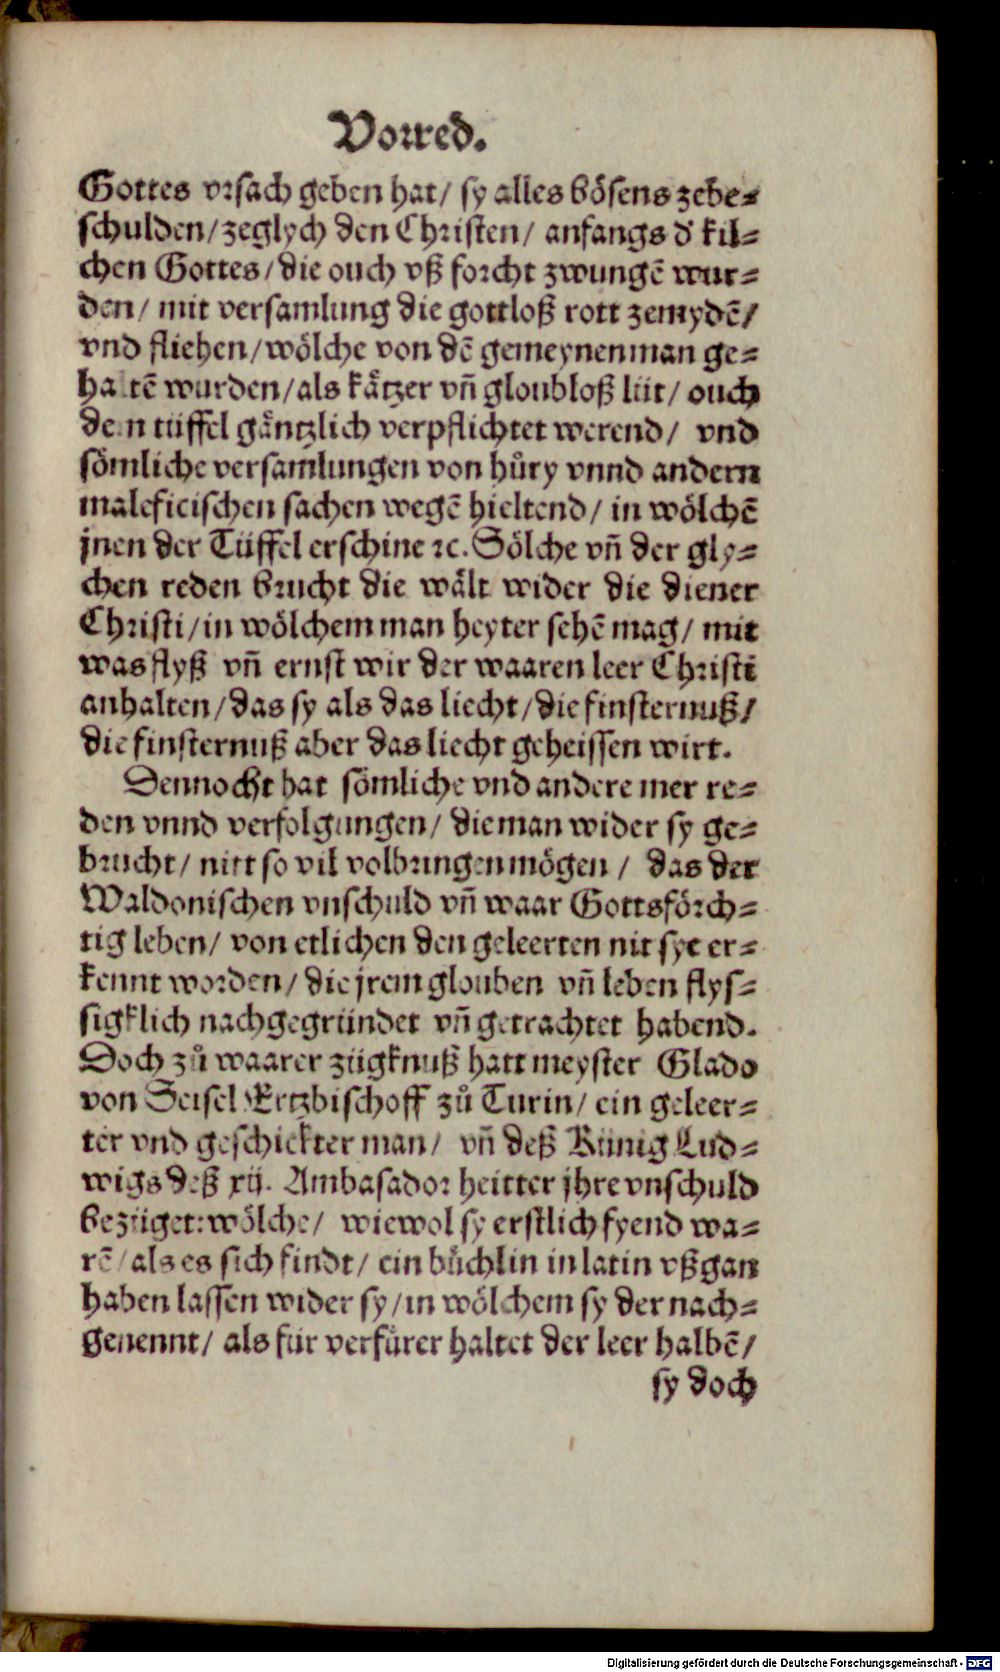 Vorred.
Gottes vrsach geben hat/ sy alles bösens zebe⸗
schulden/zeglych den Christen/ anfangs d' kil⸗
chen Gottes/die ouch vß forcht zwungē wur⸗
den/ mit versamlung die gottloß rott zemydē/
vnd fliehen/wölche von dē gemeynen man ge⸗
haltē wurden/als kätzer vn̄ gloubloß lüt/ ouch
dem tüffel gäntzlich verpflichtet werend/ vnd
sömliche versamlungen von hůry vnnd andern
maleficischen sachen wegē hieltend/ in wölchē
jnen der Tüffel erschine ⁊c. Sölche vn̄ der gly⸗
chen reden brucht die wält wider die diener
Christi/in wölchem man heyter sehē mag/ mit
was flyß vn̄ ernst wir der waaren leer Christi
anhalten/das sy als das liecht/die finsternuß/
die finsternuß aber das liecht geheissen wirt.
Dennocht hat sömliche vnd andere mer re⸗
den vnnd verfolgungen/ die man wider sy ge⸗
brucht/ nitt so vil volbringen mögen / das der
Waldonischen vnschuld vn̄ waar Gottsförch⸗
tig leben/ von etlichen den geleerten nit sye er⸗
kennt worden/ die jrem glouben vn̄ leben flys⸗
sigklich nachgegründet vn̄ getrachtet habend.
Doch zů waarer zügknuß hatt meyster Glado
von Seisel Ertzbischoff zů Turin/ ein geleer⸗
ter vnd geschickter man/ vn̄ deß Künig Lud⸗
wigs deß xij. Ambasador heitter jhre vnschuld
bezüget:wölche/ wiewol sy erstlich fyend wa⸗
rē/als es sich findt/ ein büchlin in latin vßgan
haben lassen wider sy/in wölchem sy der nach⸗
genennt/ als für verfürer haltet der leer halbē/
sy doch
Digitalisierung gefördert durch die Deutsche Forschungsgemeinschaft - DFG